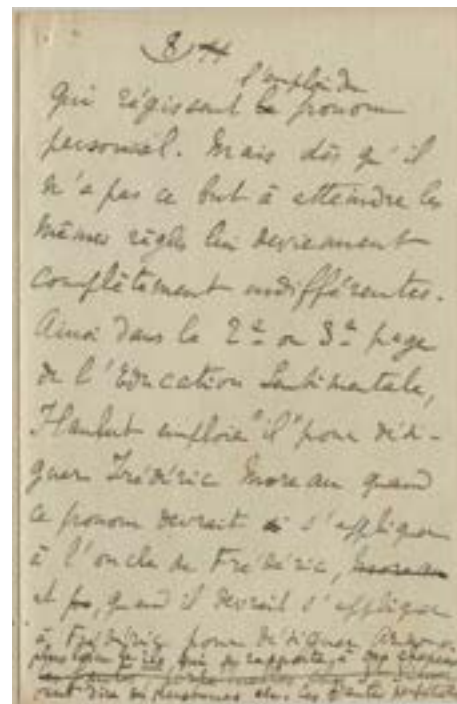 8
l'emploi du
qui régissent le pronom
personnel. Mais dès qu'il
n'a pas ce but à atteindre les
mêmes règles lui deviennent
complètement indifférentes.
Ainsi dans la 2e ou 3e page
de l'Education Sentimentale,
Flaubert emploie "il" pour dési-
gner Frédéric Moreau quand
ce pronom devrait s'appliquer
à l'oncle de Frédéric, Moreau
et quand il devrait s'appliquer
à Frédéric pour désigner Arnoux.
plus loin